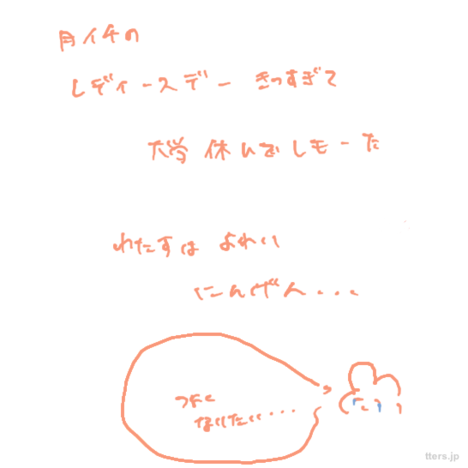 月イチの
レディースデー きっすぎて
大学 休んでしもーた
わたすは よわい
にんげん...
つよく
なりたい...
tters.jp